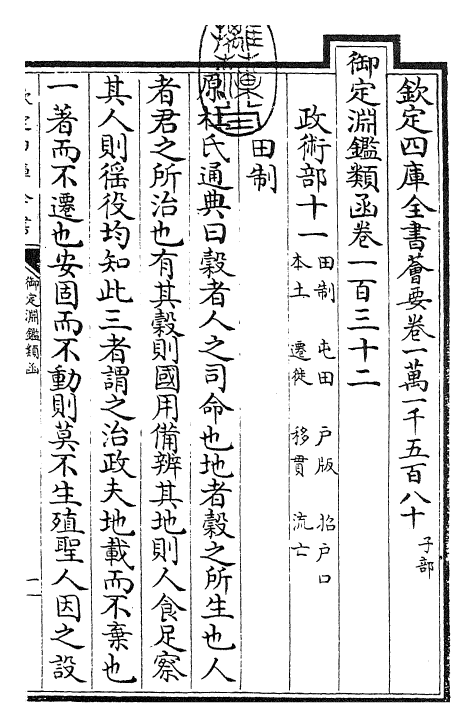 欽定四庫全書薈要卷一萬一千五百八十 子部
御定淵鑑類函卷一百三十二
政術部十一
田制 屯田 戶版 招戶口
本土 遷徙 移貫 流亡
田制
原杜氏通典曰穀者人之司命也地者穀之所生也人
者君之所治也有其穀則國用備辨其地則人食足察
其人則徭役均知此三者謂之治政夫地載而不棄也
一著而不遷也安固而不動則莫不生殖聖人因之設
欽定四庫全書
御定淵鑑類函
一